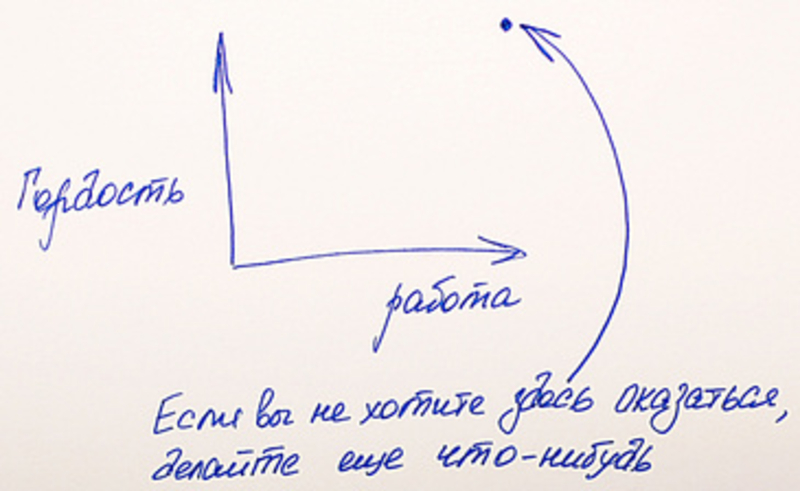 Гордость
работа
Если вы не хотите здесь оказаться,
делайте еще что-нибудь